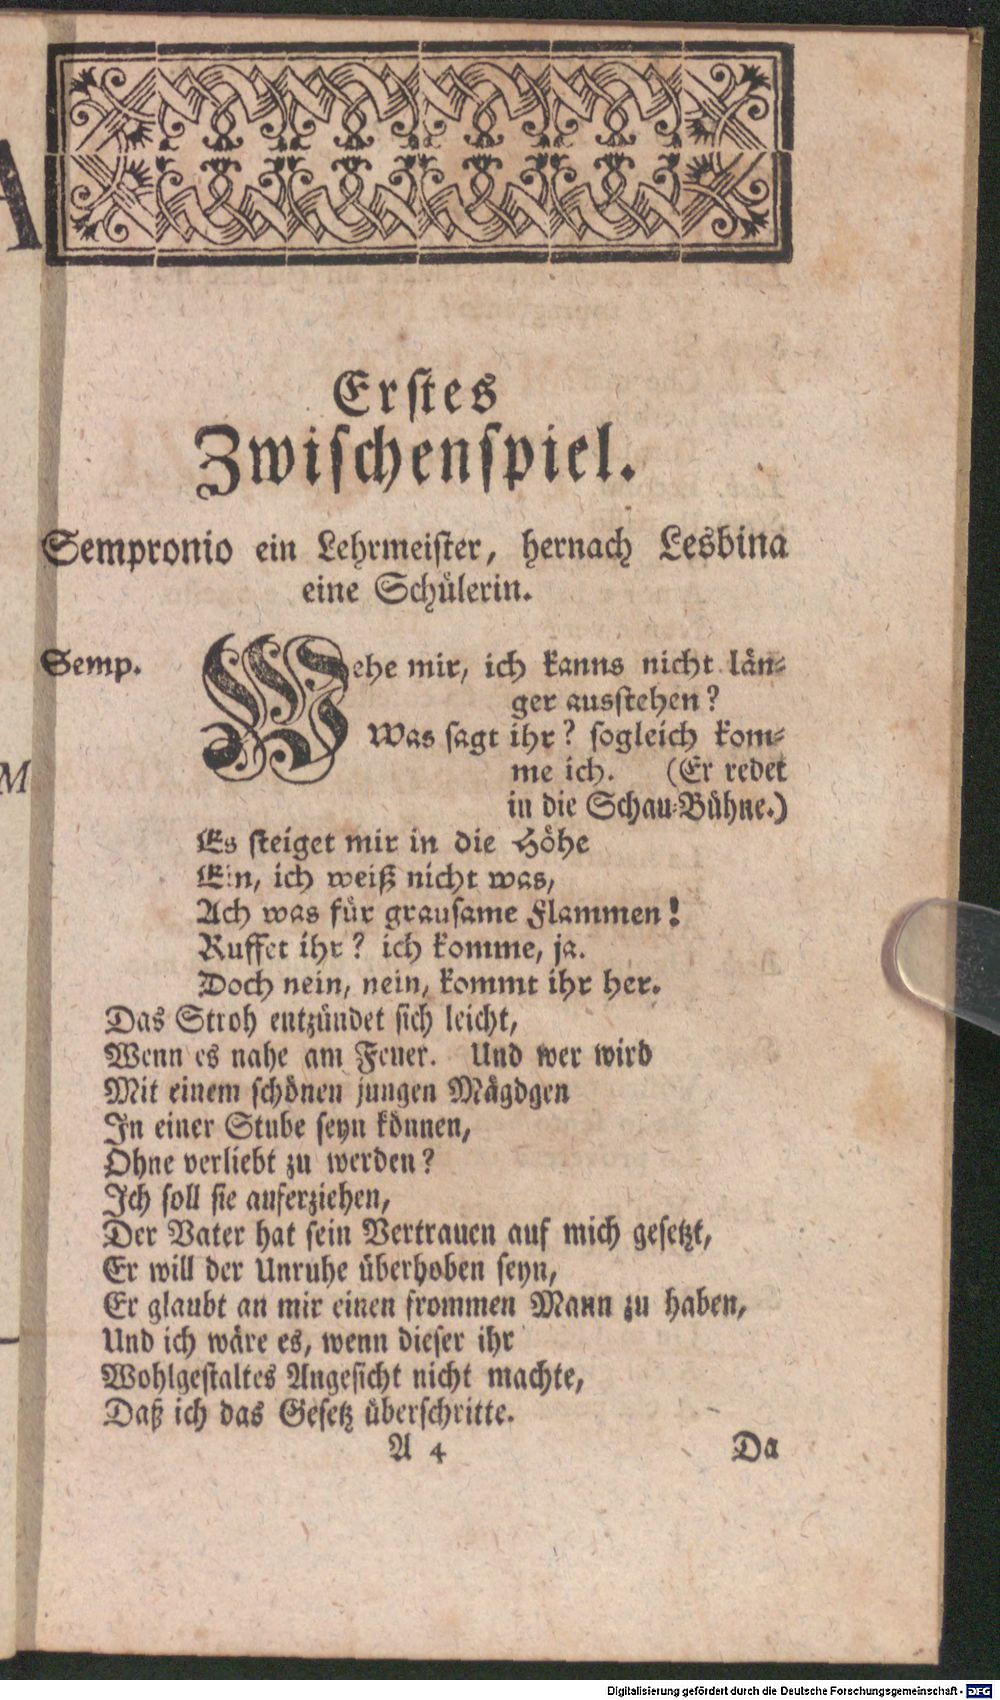 Erstes
Zwischenspiel.
Sempronio ein Lehrmeister, hernach Lesbina
eine Schülerin.
Semp. Wehe mir, ich kanns nicht län-
ger ausstehen?
Was sagt ihr? sogleich kom-
me ich. (Er redet
in die Schau-Bühne.)
Es steiget mir in die Höhe
Ein, ich weiß nicht was,
Ach was für grausame Flammen!
Ruffet ihr? ich komme, ja.
Doch nein, nein, kommt ihr her.
Das Stroh entzündet sich leicht,
Wenn es nahe am Feuer. Und wer wird
Mit einem schönen jungen Mägdgen
In einer Stube seyn können,
Ohne verliebt zu werden?
Ich soll sie auferziehen,
Der Vater hat sein Vertrauen auf mich gesetzt,
Er will der Unruhe überhoben seyn,
Er glaubt an mir einen frommen Mann zu haben,
Und ich wäre es, wenn dieser ihr
Wohlgestaltes Angesicht nicht machte,
Daß ich das Gesetz überschritte.
A 4 Da
A
M
Digitalisierung gefördert durch die Deutsche Forschungsgemeinschaft - DFG